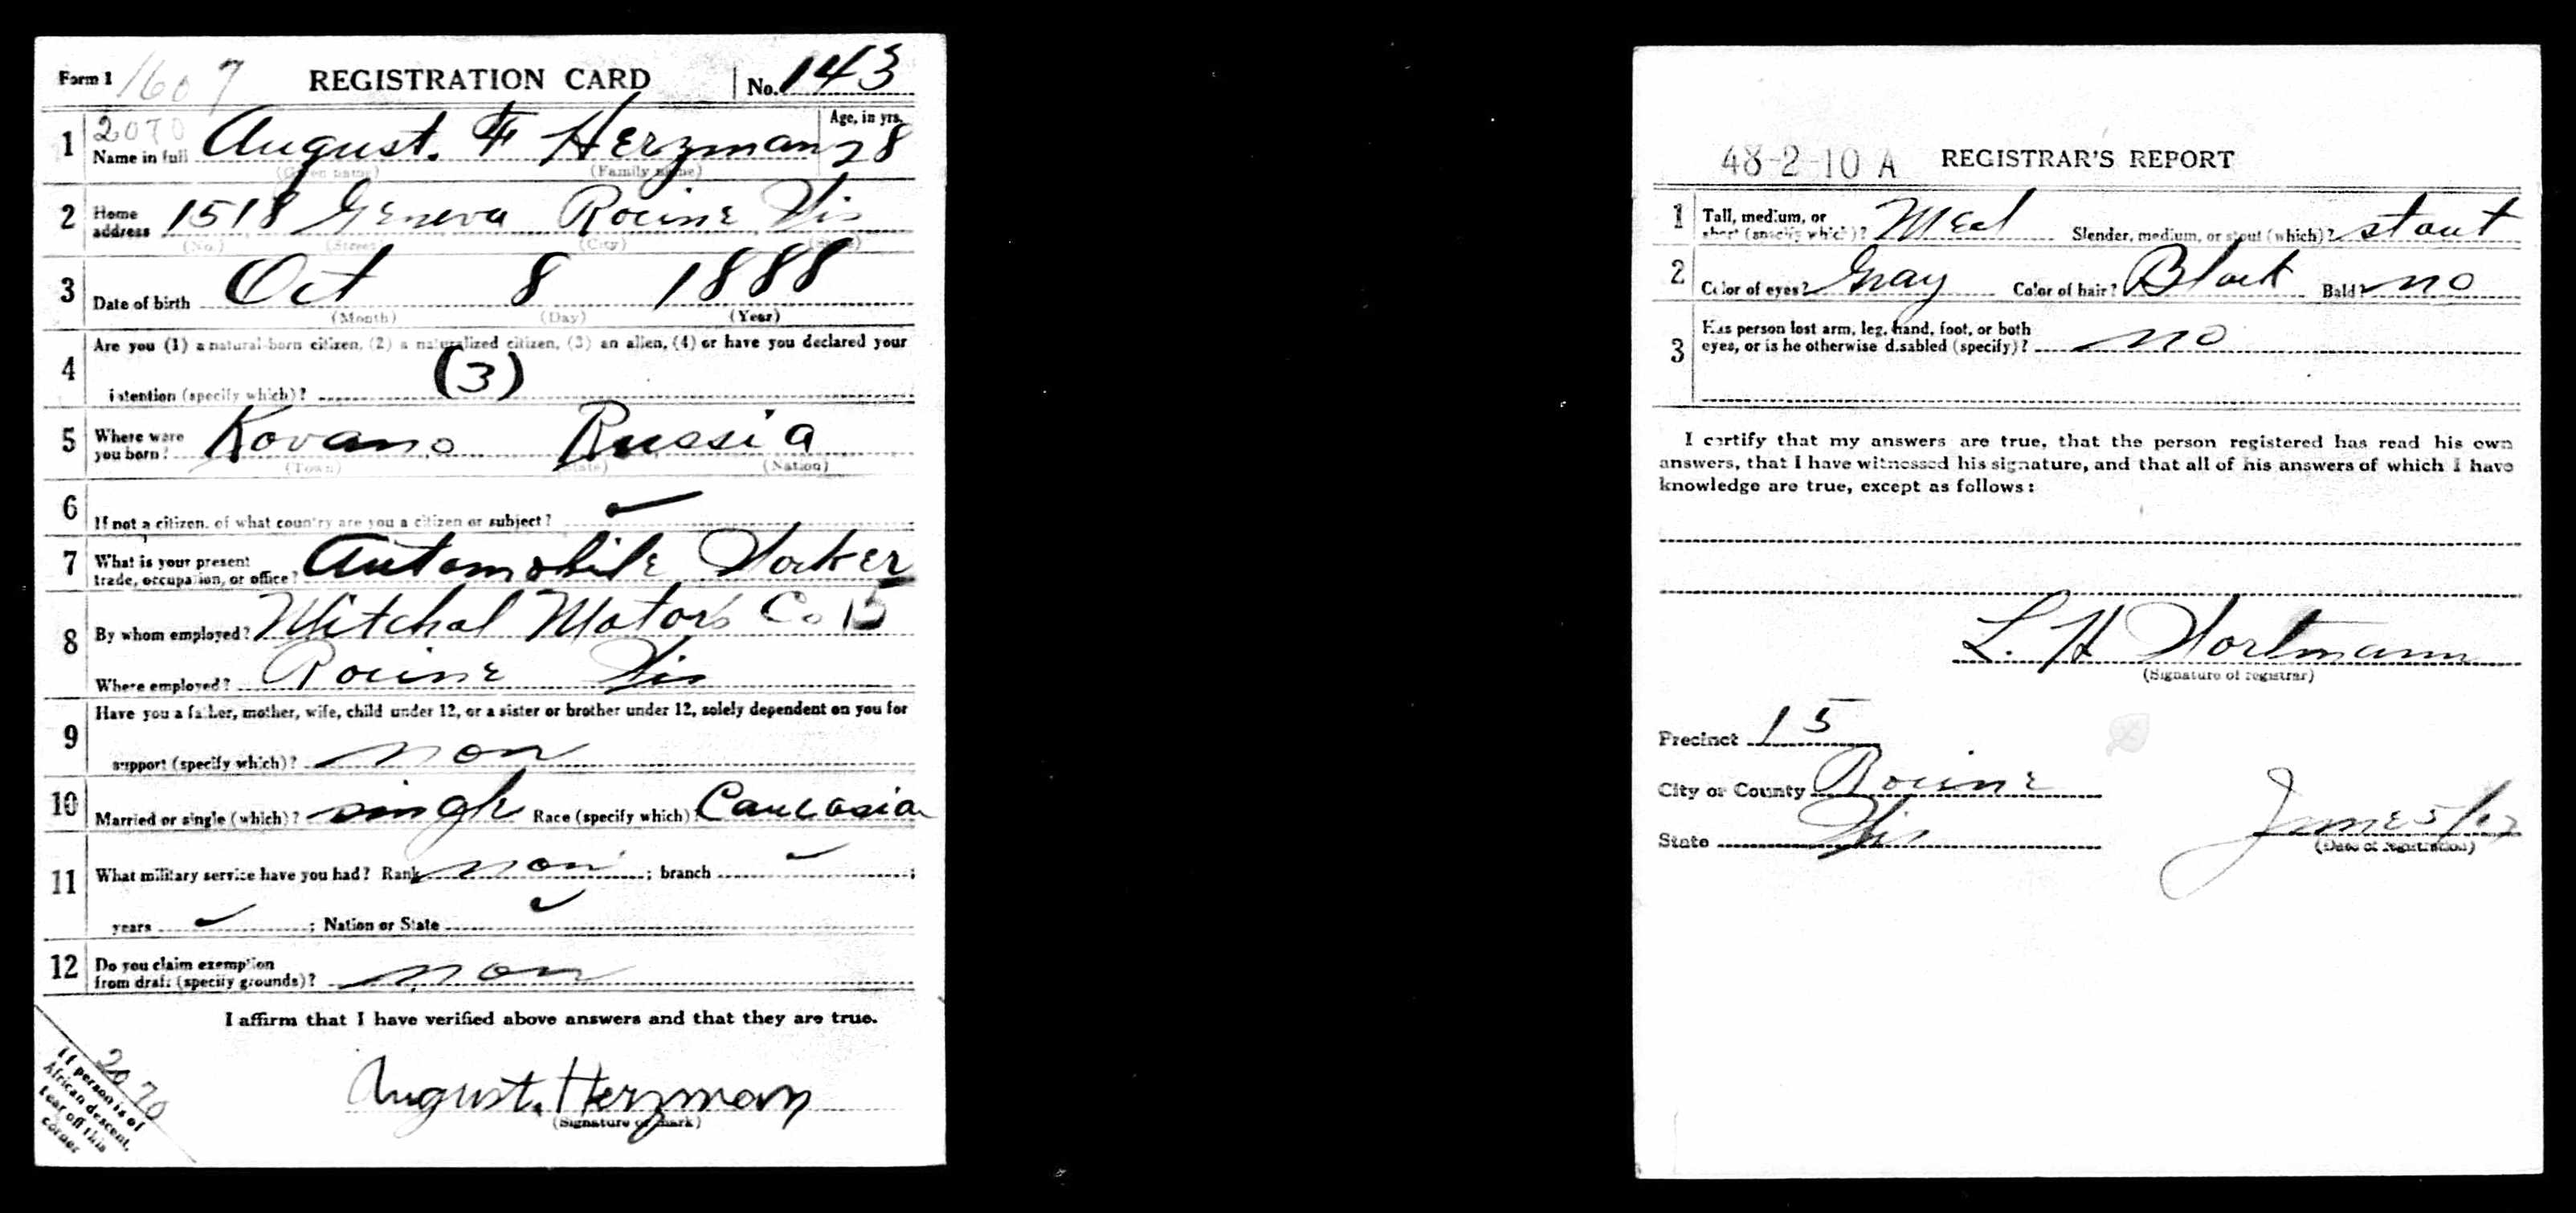 Form 1 1607 REGISTRATION CARD No. 143
1 2070 Name in full August. F Herzman Age, in yrs. 28
(Given name) (Family name)
2 Home address 1518 Geneva Racine Wis
(No.) (Street) (City) (State)
3 Date of birth Oct 8 1888
(Month) (Day) (Year)
4 Are you (1) a natural-born citizen, (2) a naturalized citizen, (3) an alien, (4) or have you declared your
intention (specify which)? (3)
5 Where were you born? Kovano Russia
(Town) (State) (Nation)
6 If not a citizen, of what country are you a citizen or subject? ✓
7 What is your present trade, occupation, or office? Automobile Worker
8 By whom employed? Mitchal Motors Co 15
Where employed? Racine Wis
9 Have you a father, mother, wife, child under 12, or a sister or brother under 12, solely dependent on you for
support (specify which)? non
10 Married or single (which)? single Race (specify which)? Caucasian
11 What military service have you had? Rank non ; branch ✓ ;
years ✓ ; Nation or State ✓
12 Do you claim exemption from draft (specify grounds)? non
I affirm that I have verified above answers and that they are true.
August. Herzman
(Signature or mark)
2070
If person is of
African descent,
tear off this
corner
48-2-10 A REGISTRAR'S REPORT
1 Tall, medium, or short (specify which)? Med Slender, medium, or stout (which)? stout
2 Color of eyes? Gray Color of hair? Black Bald? no
3 Has person lost arm, leg, hand, foot, or both
eyes, or is he otherwise disabled (specify)? no
I certify that my answers are true, that the person registered has read his own
answers, that I have witnessed his signature, and that all of his answers of which I have
knowledge are true, except as follows:
L. H Wortmann
(Signature of registrar)
Precinct 15
City or County Racine
State Wis
June 5/17
(Date of registration)